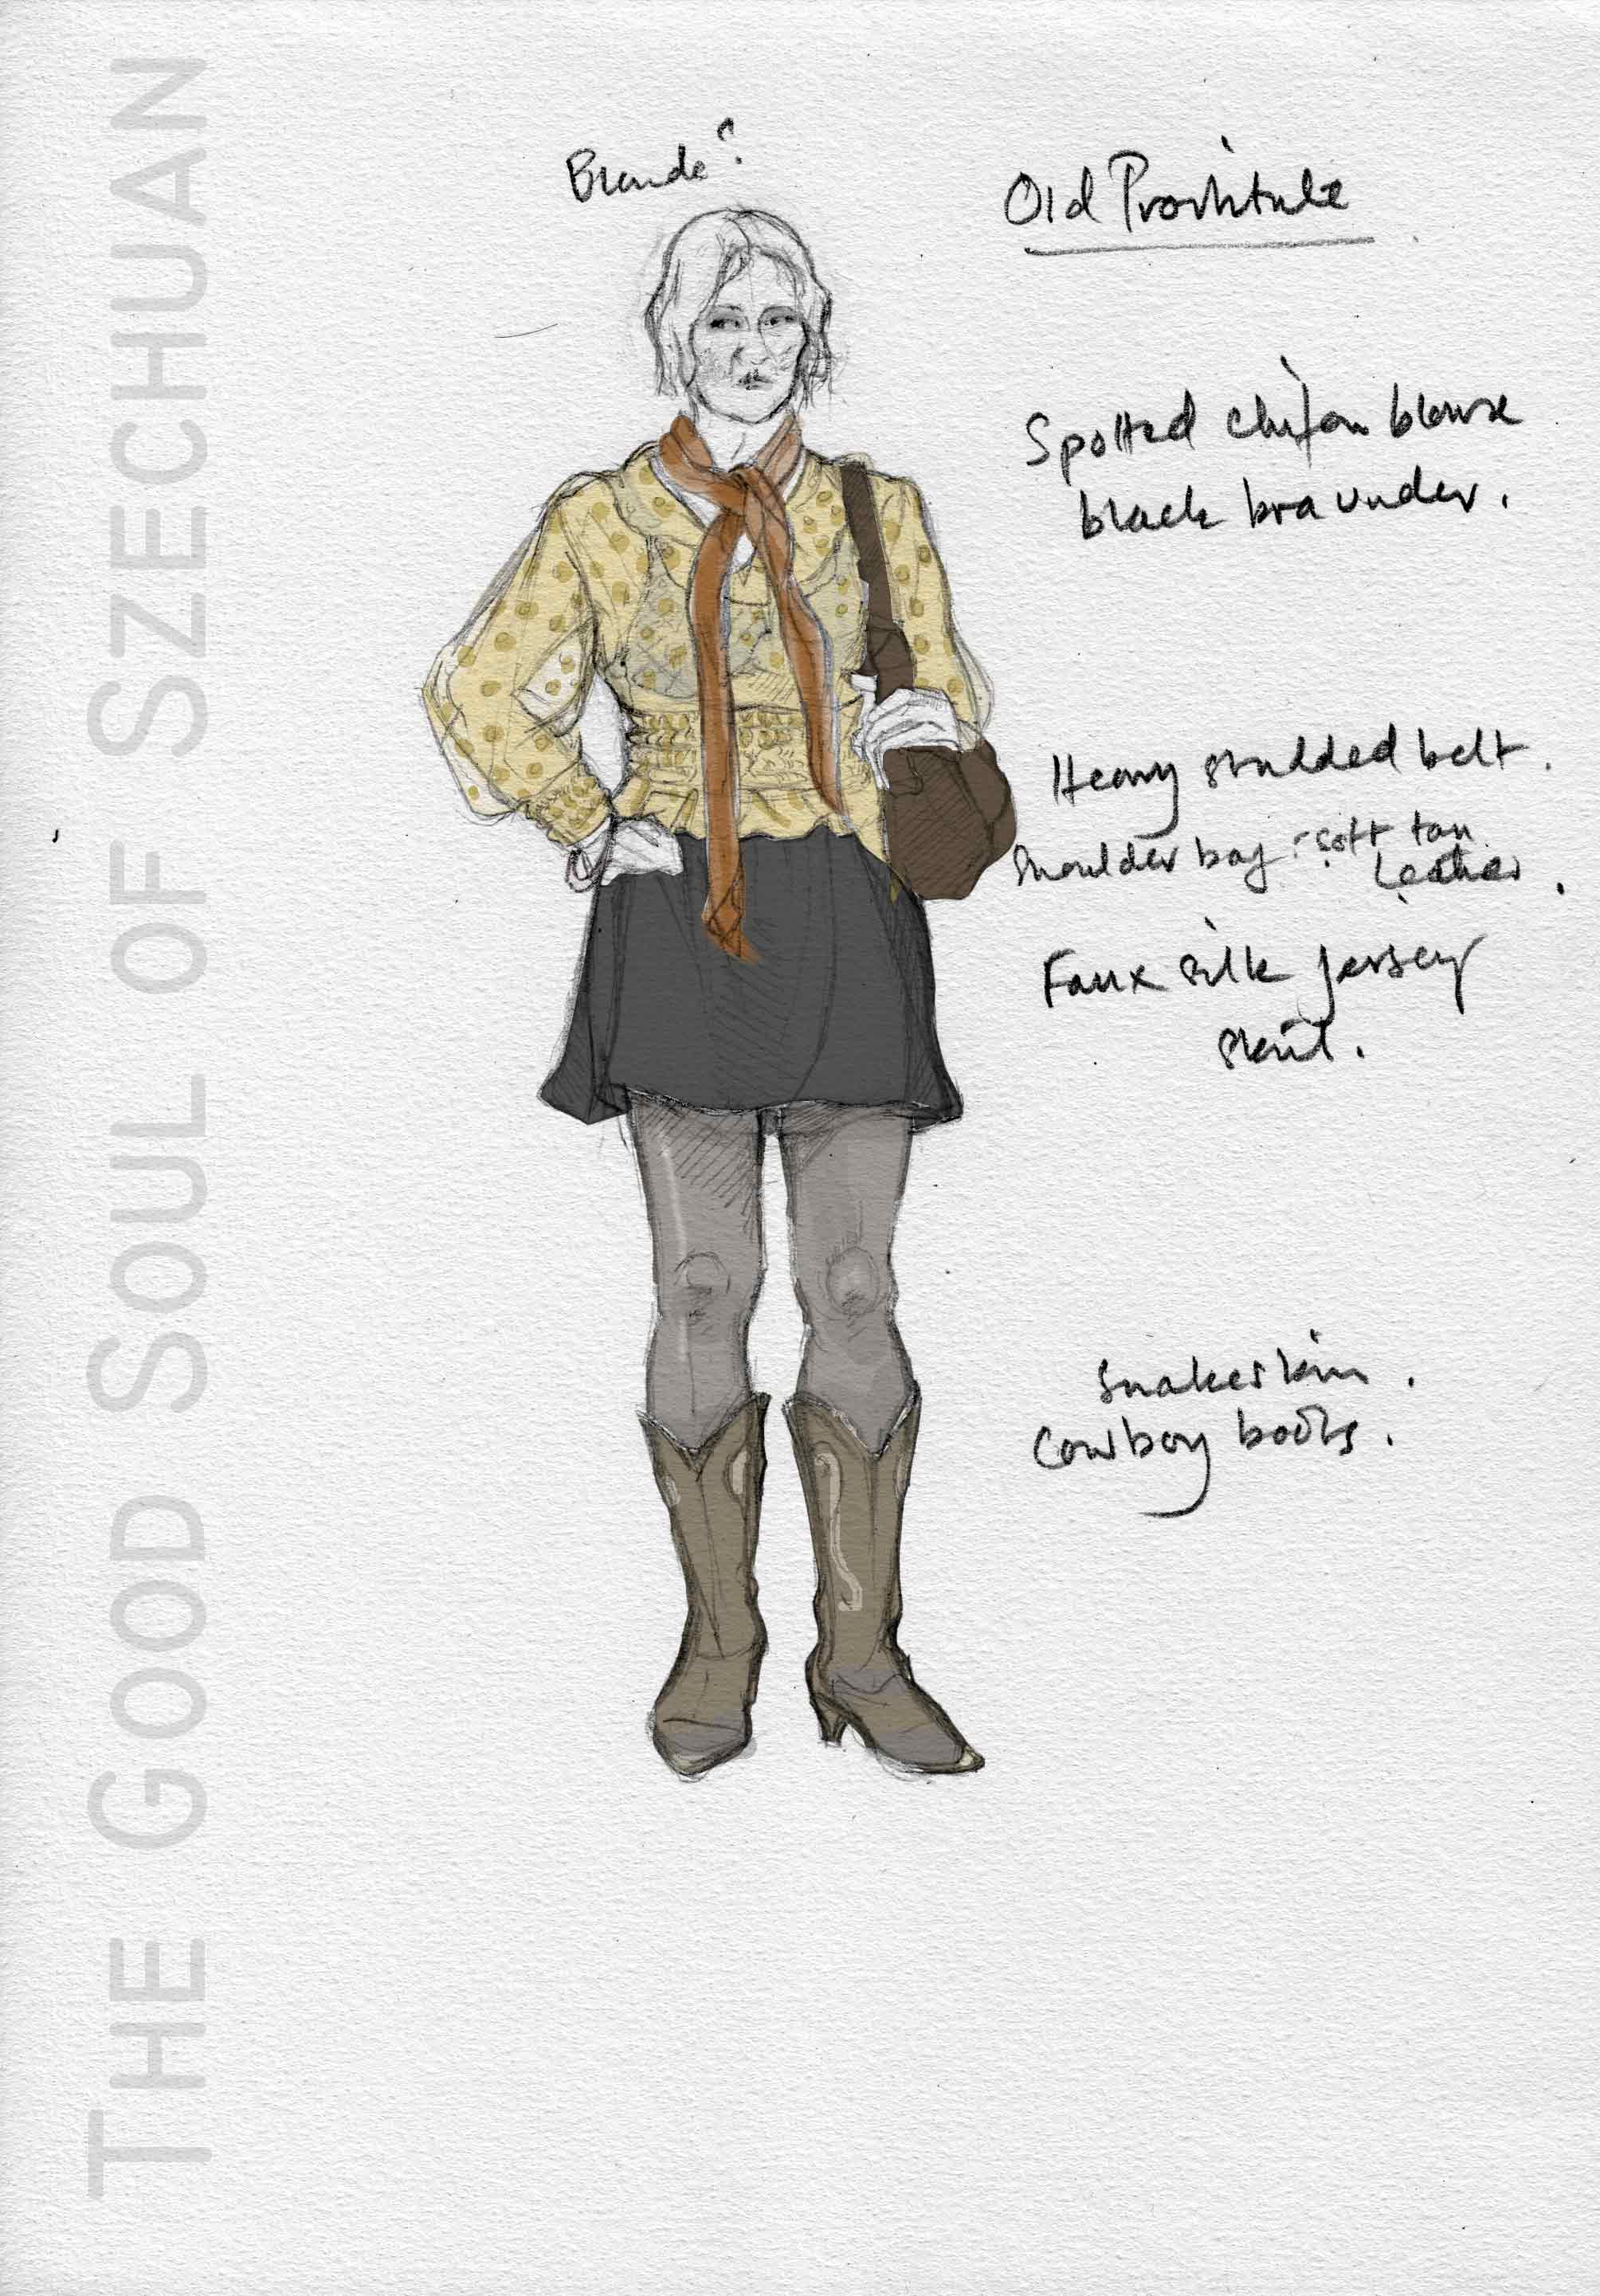 THE GOOD SOUL OF SZECHUAN
Blonde?
Old Prostitute
Spotted chifon blouse
black bra under.
Heavy studded belt.
Shoulder bag - soft tan
Leather.
Faux silk jersey
skirt.
Snakeskin.
Cowboy boots.